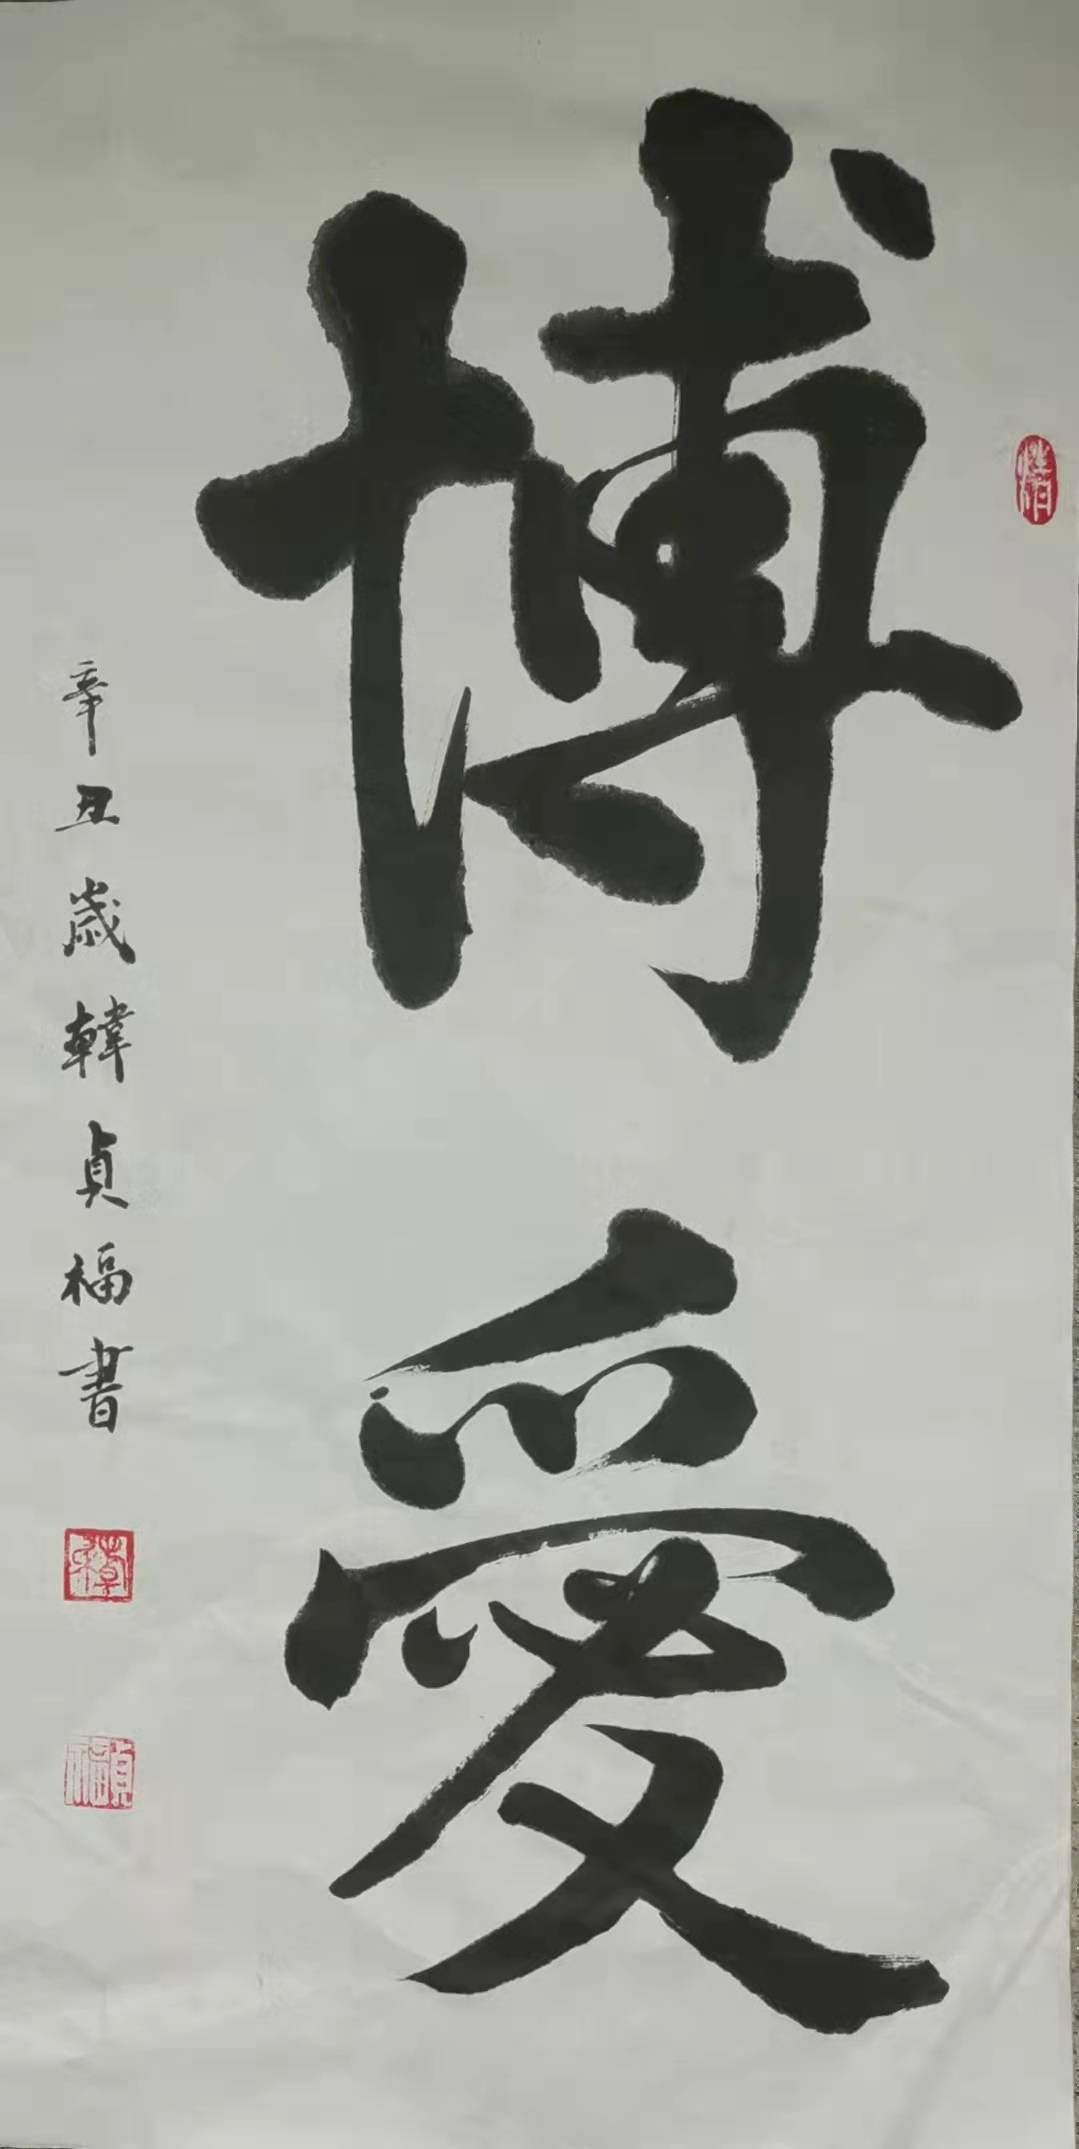 博愛
辛丑歳韓貞福書